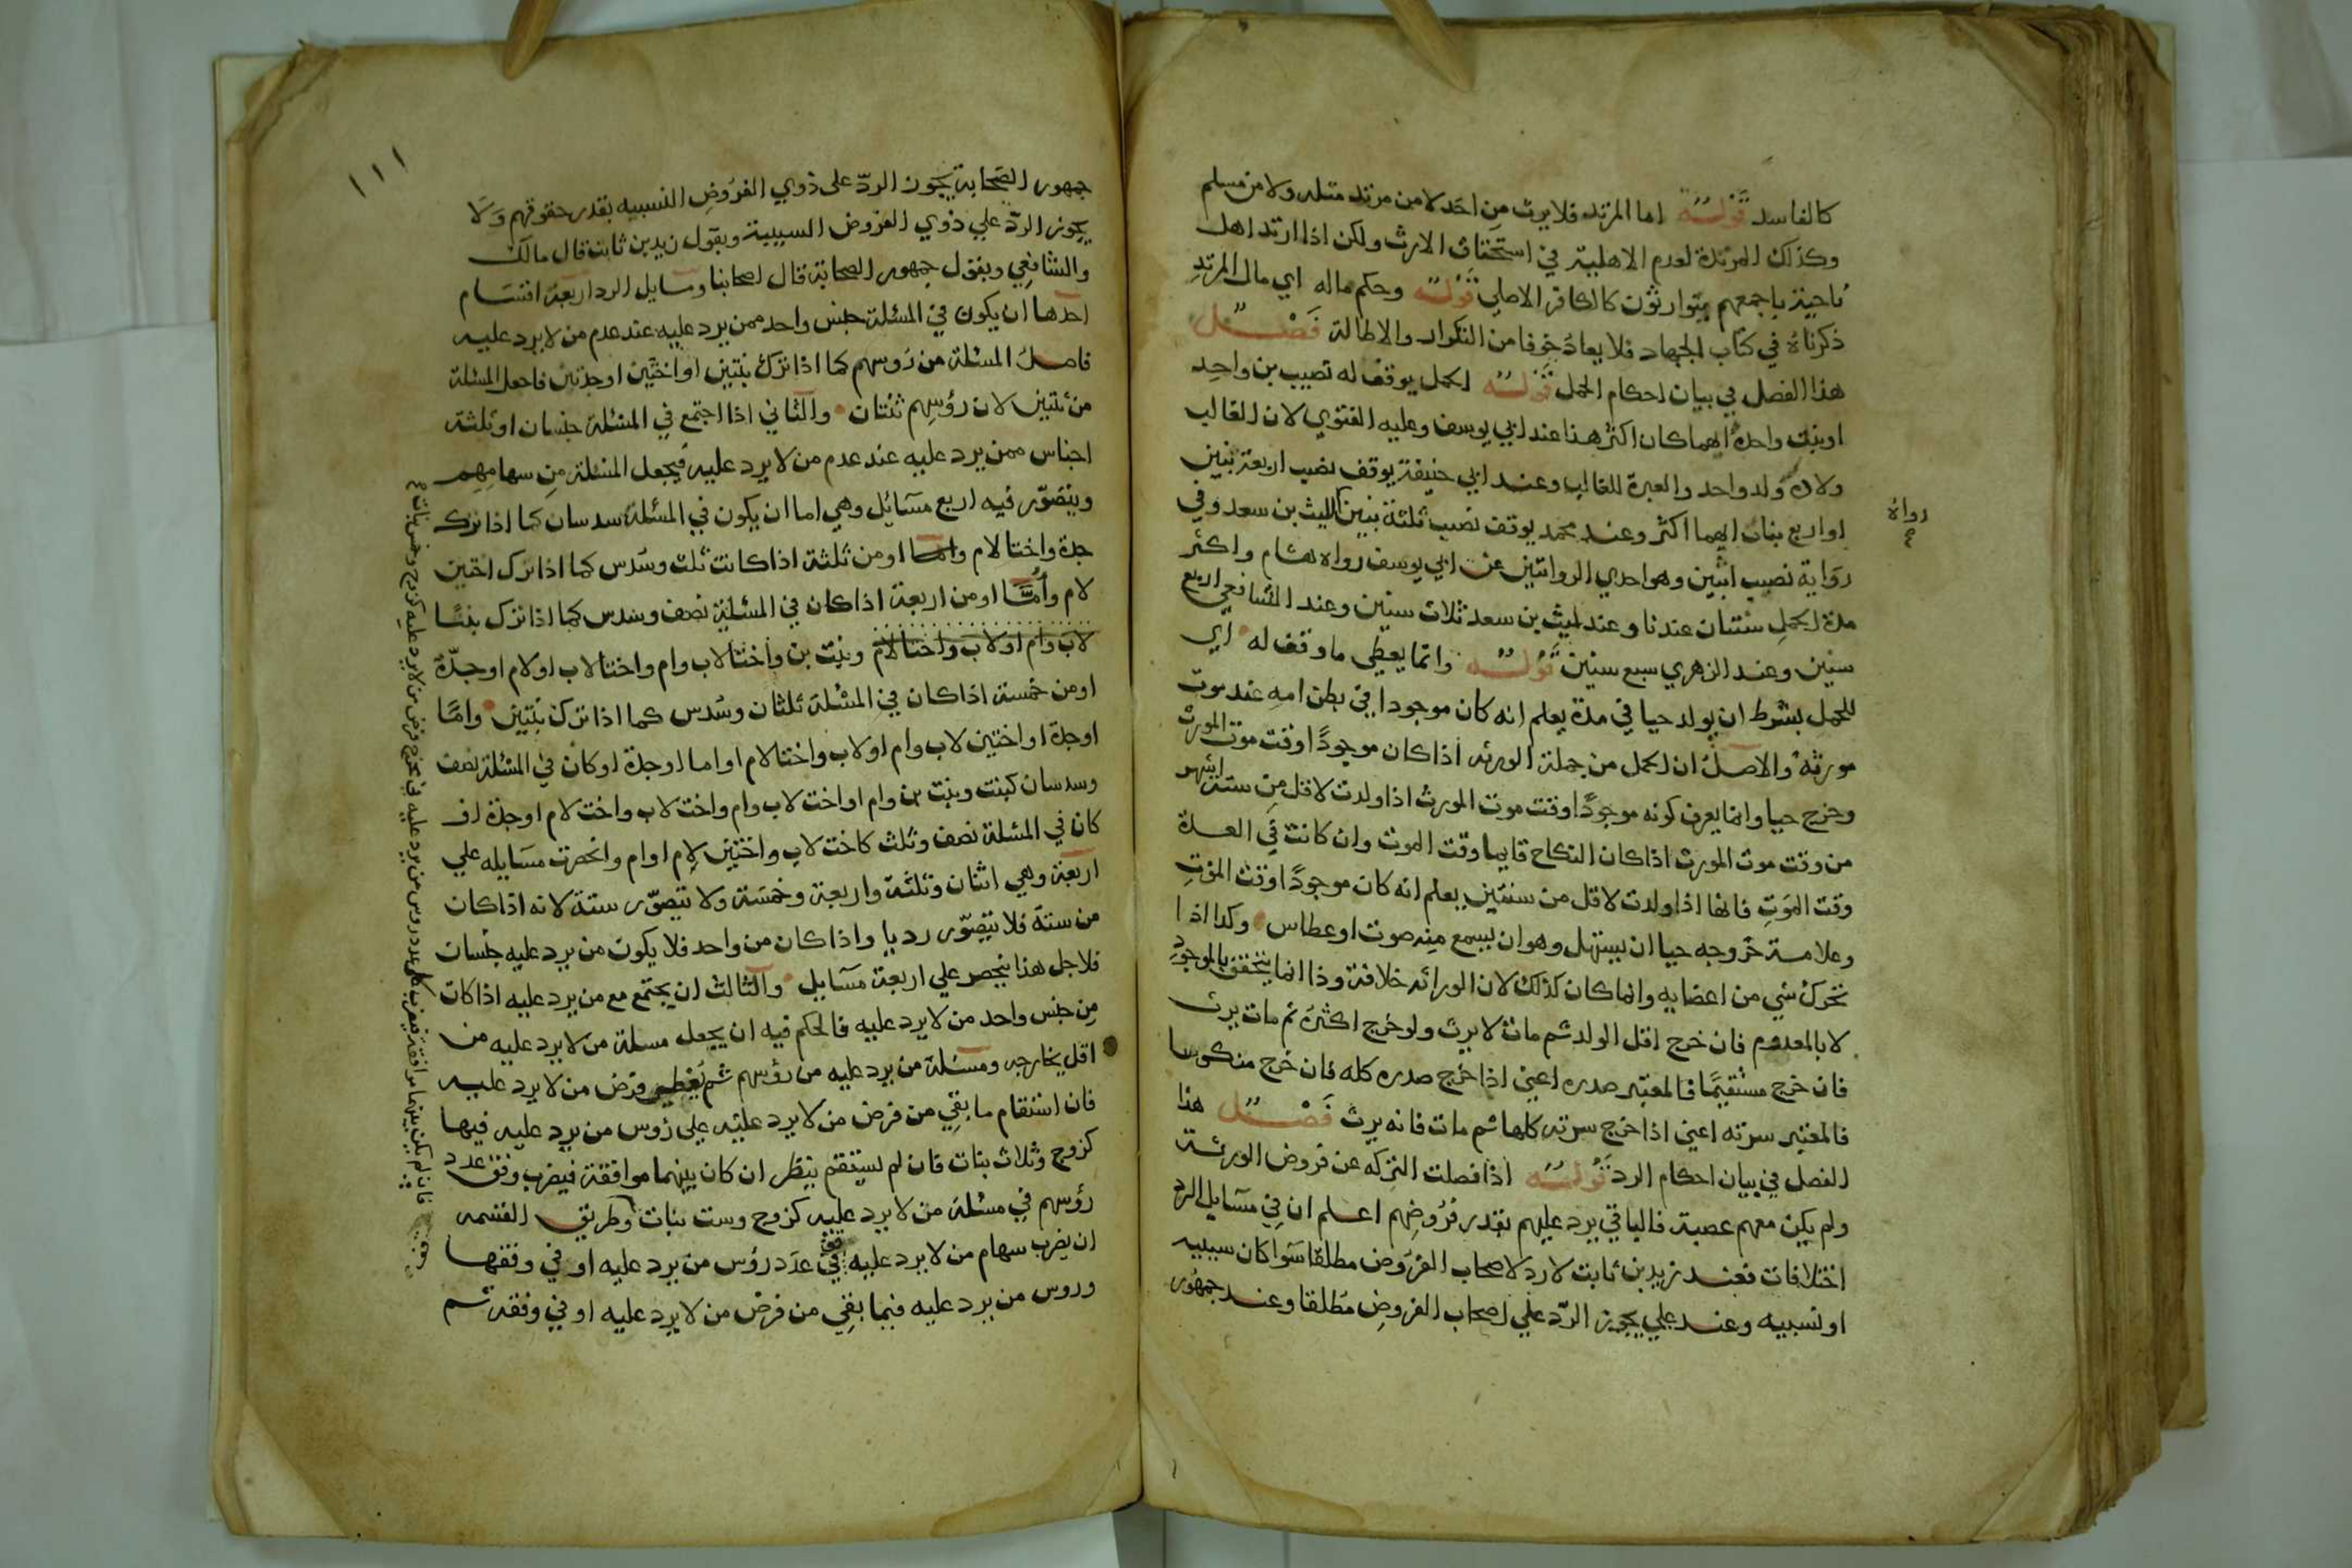 كالفاسد قوله اما المرتد فلا يرث من احد لا من مرتد مثله ولا من مسلم
وكذلك المرتدة لعدم الاهلية في استحقاق الارث ولكن اذا ارتد اهل
ناحية باجمعهم يتوارثون كالكافر الاصلي قوله وحكم ماله اي مال المرتد
ذكرناه في كتاب الجهاد فلا يعاد خوفا من التكرار والاطالة فصل
هذا الفصل في بيان احكام الحمل قوله الحمل يوقف له نصيب بن واحد
او بنت واحدة ايهما كان اكثر هذا عند ابي يوسف وعليه الفتوي لان الغالب
ولادة ولد واحد والعبرة للغالب وعند ابي حنيفة يوقف نصيب اربعة بنين
او اربع بنات ايهما اكثر وعند محمد يوقف نصيب ثلثة بنين الليث بن سعد وفي
رواه
رواية نصيب اثنين وهو احدي الروايتين عن ابي يوسف رواه هشام واكثر
مدة الحمل سنتان عندنا وعند ليث بن سعد ثلاث سنين وعند الشافعي اربع
سنين وعند الزهري سبع سنين قوله وانما يعطي ما وقف له اي
للحمل بشرط ان يولد حيا في مدة يعلم انه كان موجودا في بطن امه عند موت
مورثه والاصل ان الحمل من جملة الورثه اذا كان موجودا وقت موت المورث
وخرج حيا وانما يعرف كونه موجودا وقت موت المورث اذا ولدت لاقل من ستة اشهر
من وقت موت المورث اذا كان النكاح قايما وقت الموت وان كانت في العدة
وقت الموت فانها اذا ولدت لاقل من سنتين يعلم انه كان موجودا وقت الموت
وعلامة خروجه حيا ان يستهل وهو ان يسمع منه صوت او عطاس وكذا اذا
تحرك شي من اعضايه وانما كان كذلك لان الوراثه خلافة وذا انما يتحقق بالموجود
لا بالمعدوم فان خرج اقل الولد ثم مات لا يرث ولو خرج اكثره ثم مات يرث
فان خرج مستقيما فالمعتبر صدره اعني اذا خرج صدره كله فان خرج منكوسا
فالمعتبر سرته اعني اذا خرج سرته كلها ثم مات فانه يرث فصل هذا
الفصل في بيان احكام الرد قوله اذا فضلت التركه عن فروض الورثة
ولم يكن معهم عصبة فالباقي يرد عليهم بقدر فروضهم اعلم ان في مسايل الرد
اختلافات فعند زيد بن ثابت لا رد لاصحاب الفروض مطلقا سوا كان سببيه
او نسبيه وعند علي يجوز الرد علي اصحاب الفروض مطلقا وعند جمهور
١١١
جمهور الصحابة يجوز الرد على ذوي الفروض النسبيه بقدر حقوقهم ولا
يجوز الرد علي ذوي الفروض السببية وبقول زيد بن ثابت قال مالك
والشافعي وبقول جمهور الصحابة قال اصحابنا ومسايل الرد اربعة اقسام
احدها ان يكون في المسئلة جنس واحد ممن يرد عليه عند عدم من لا يرد عليه
فاصل المسئلة من رؤسهم كما اذا ترك بنتين او اختين او جدتين فاجعل المسئلة
من ثنتين لان رؤسهم ثنتان والثاني اذا اجتمع في المسئلة جنسان او ثلثة
اجناس ممن يرد عليه عند عدم من لا يرد عليه فيجعل المسئلة من سهامهم
ويتصور فيه اربع مسائل وهي اما ان يكون في المسئلة سدسان كما اذا ترك
جدة واختا لام واما او من ثلثة اذا كانت ثلث وسدس كما اذا ترك اختين
لام وأمّا او من اربعة اذا كان في المسئلة نصف وسدس كما اذا ترك بنتا
لاب وام او لاب واختا لام وبنت بن واختا لاب وام واختا لاب او لام او جدة
او من خمسة اذا كان في المسئلة ثلثان وسدس كما اذا ترك بنتين واما
او جدة او اختين لاب وام او لاب واختا لام او اما او جدة او كان في المسئلة نصف
وسدسان كبنت وبنت بن وام او اخت لاب وام واخت لاب واخت لام او جدة او
كان في المسئلة نصف وثلث كاخت لاب واختين لام او ام وانحصرت مسايله علي
اربعة وهي اثنان وثلثة واربعة وخمسة ولا يتصور ستة لانه اذا كان
من ستة فلا يتصور رد يا واذا كان من واحد فلا يكون من يرد عليه جنسان
فلاجل هذا ينحصر علي اربعة مسايل والثالث ان يجتمع مع من يرد عليه اذا كان
من جنس واحد من لا يرد عليه فالحكم فيه ان يجعل مسلة من لا يرد عليه من
اقل مخارجه ومسئلة من يرد عليه من رؤسهم ثم يعطي فرض من لا يرد عليه
فان استقام ما بقي من فرض من لا يرد عليه علي رؤس من يرد عليه فيها
كزوج وثلاث بنات فان لم يستقم ينظر ان كان بينهما موافقة فيضرب وفق عدد
رؤسهم في مسئلة من لا يرد عليه كزوج وست بنات وطريق القسمه
ان يضرب سهام من لا يرد عليه في عدد رؤس من يرد عليه او في وفقها
وروس من يرد عليه فيما بقي من فرض من لا يرد عليه او في وفقه ثم
فان لم يكن بينهما موافقة فيضرب كل عدد روس من يرد عليه في مخرج فرض من لا يرد عليه كزوج وخمس بنات